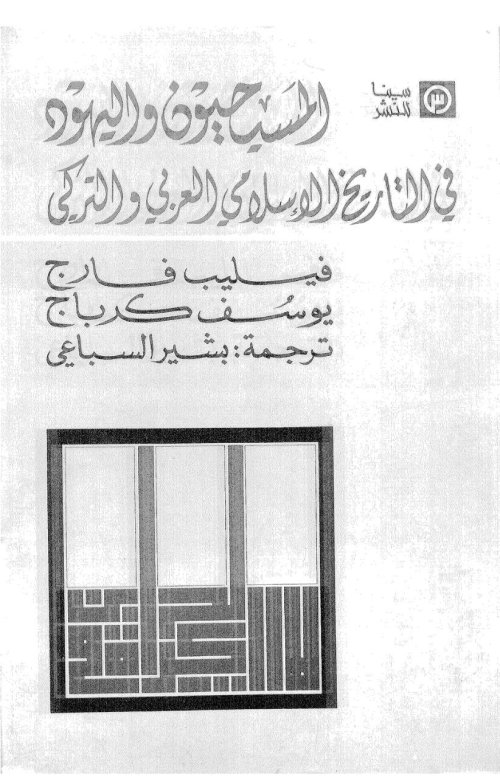 سينا
للنشر
المسيحيون واليهود
في التاريخ الإسلامي العربي والتركي
فيليب فارج
يوسُف كرباج
ترجمة: بشير السباعي